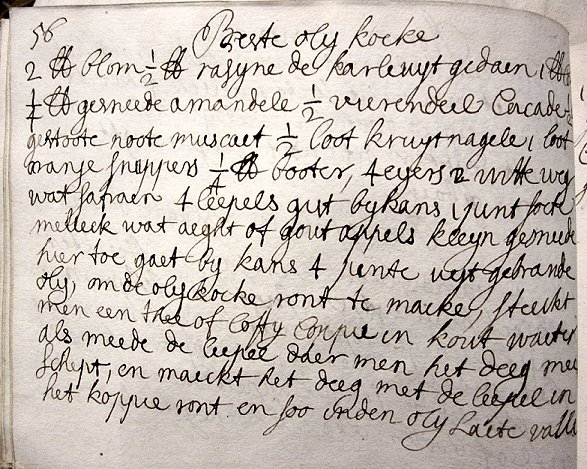 56
Beste oly koeke
2 ℔ blom ½ ℔ rasyne de karle uyt gedaen 1 ℔
¼ ℔ gesneede amandele ½ vierendeel Cucade
gestoote noote muscaet ½ loot kruytnagele 1 loot
oranje snippers ¼ ℔ booter, 4 eyers 2 witte weg
wat safraen 4 leepels gist bykans 1 pint soete
melleck wat aeght of gout appels kleyn gesneede
hier toe gaet by kans 4 pinte uyt gebrande
oly, om de oly koeke ront te maeke, steeckt
men een thee of coffy coupie in kout waeter
als meede de leepel daer men het deeg mee
schept, en maeckt het deeg met de leepel in
het koppie ront en soo in den oly Laete valle